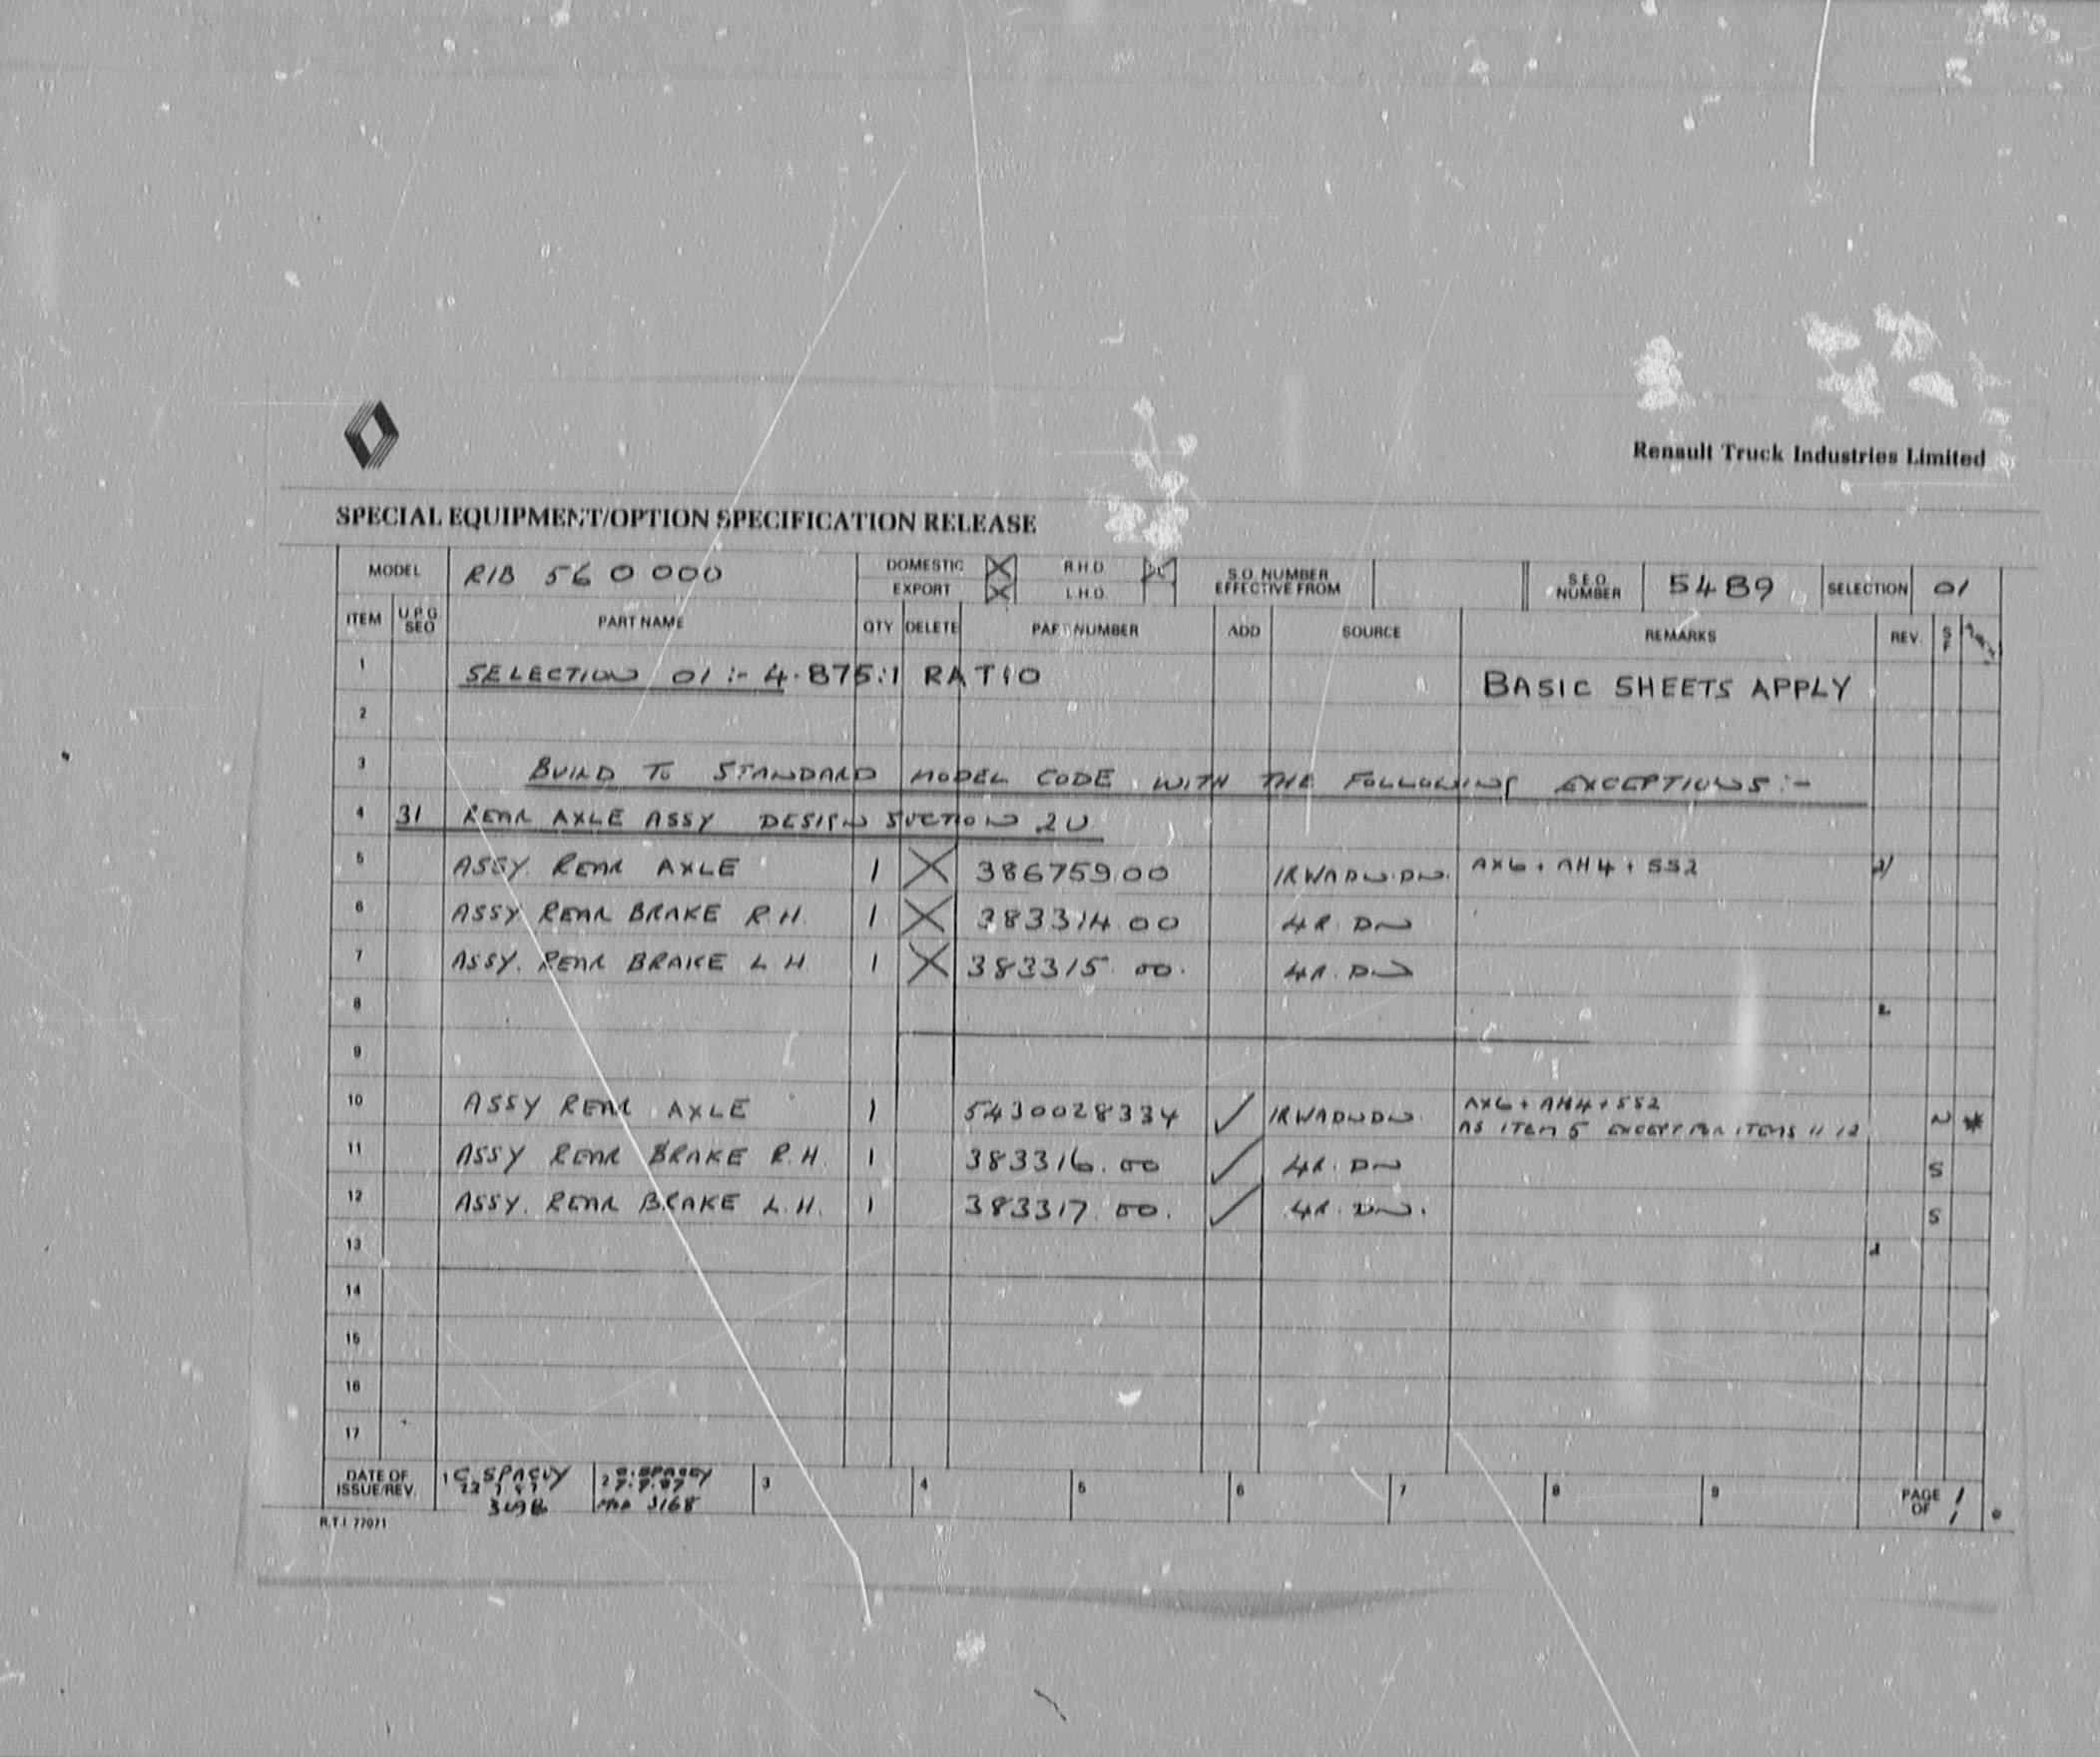 Renault Truck Industries Limited
SPECIAL EQUIPMENT/OPTION SPECIFICATION RELEASE
MODEL RIB 560000 DOMESTIC X R.H.D. X S.O. NUMBER EFFECTIVE FROM S.E.O. NUMBER 5489 SELECTION 01
EXPORT X L.H.D.
ITEM U.P.G SEQ PART NAME QTY DELETE PART NUMBER ADD SOURCE REMARKS REV. S F
1 SELECTION 01 :- 4.875:1 RATIO BASIC SHEETS APPLY
2
3 BUILD TO STANDARD MODEL CODE WITH THE FOLLOWING EXCEPTIONS :-
4 31 REAR AXLE ASSY DESIGN SECTION 2U
5 ASSY. REAR AXLE 1 X 386759.00 1RWADWDW. AX6 + AH4 + SS2
6 ASSY REAR BRAKE R.H. 1 X 383314.00 4R. DW
7 ASSY. REAR BRAKE L.H 1 X 383315.00. 4R. DW
8 2
9
10 ASSY REAR AXLE 1 5430028334 ✓ 1RWADWDW. AX6 + AH4 + SS2
AS ITEM 5 EXCEPT FOR ITEMS 11 12 N *
11 ASSY REAR BRAKE R.H. 1 383316.00 ✓ 4R. DW S
12 ASSY. REAR BRAKE L.H. 1 383317.00. ✓ 4R. DW. S
13 1
14
15
16
17
DATE OF ISSUE/REV. 1 C. SPACEY 2 C. SPACEY 3 4 5 6 7 8 9 PAGE 1 OF 1
7.7.87
3168
R.T.I. 77071